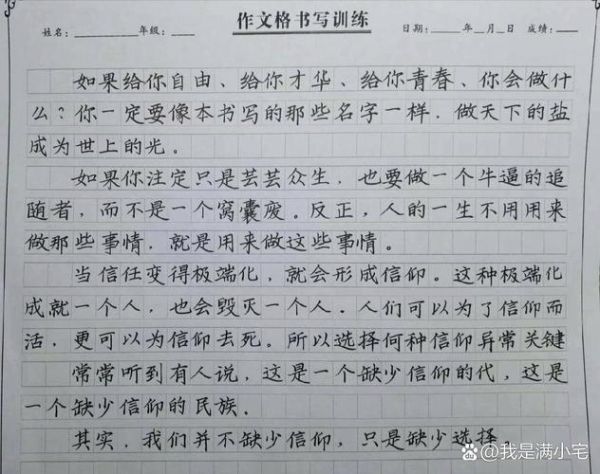 作文格书写训练
姓名：______年级：____ 日期：_____年__月__日 成绩：___
如果给你自由、给你才华、给你青春、你会做什
么？你一定要像本书写的那些名字一样，做天下的盐
成为世上的光。
如果你注定只是芸芸众生，也要做一个牛逼的追
随者，而不是一个窝囊废。反正，人的一生不用用来
做那些事情，就是用来做这些事情。
当信任变得极端化，就会形成信仰。这种极端化
成就一个人，也会毁灭一个人。人们可以为了信仰而
活，更可以为信仰去死。所以选择何种信仰异常关键
常常听到有人说，这是一个缺少信仰的代，这是
一个缺少信仰的民族。
其实，我们并不缺少信仰，只是缺少选择。
@我是满小宅